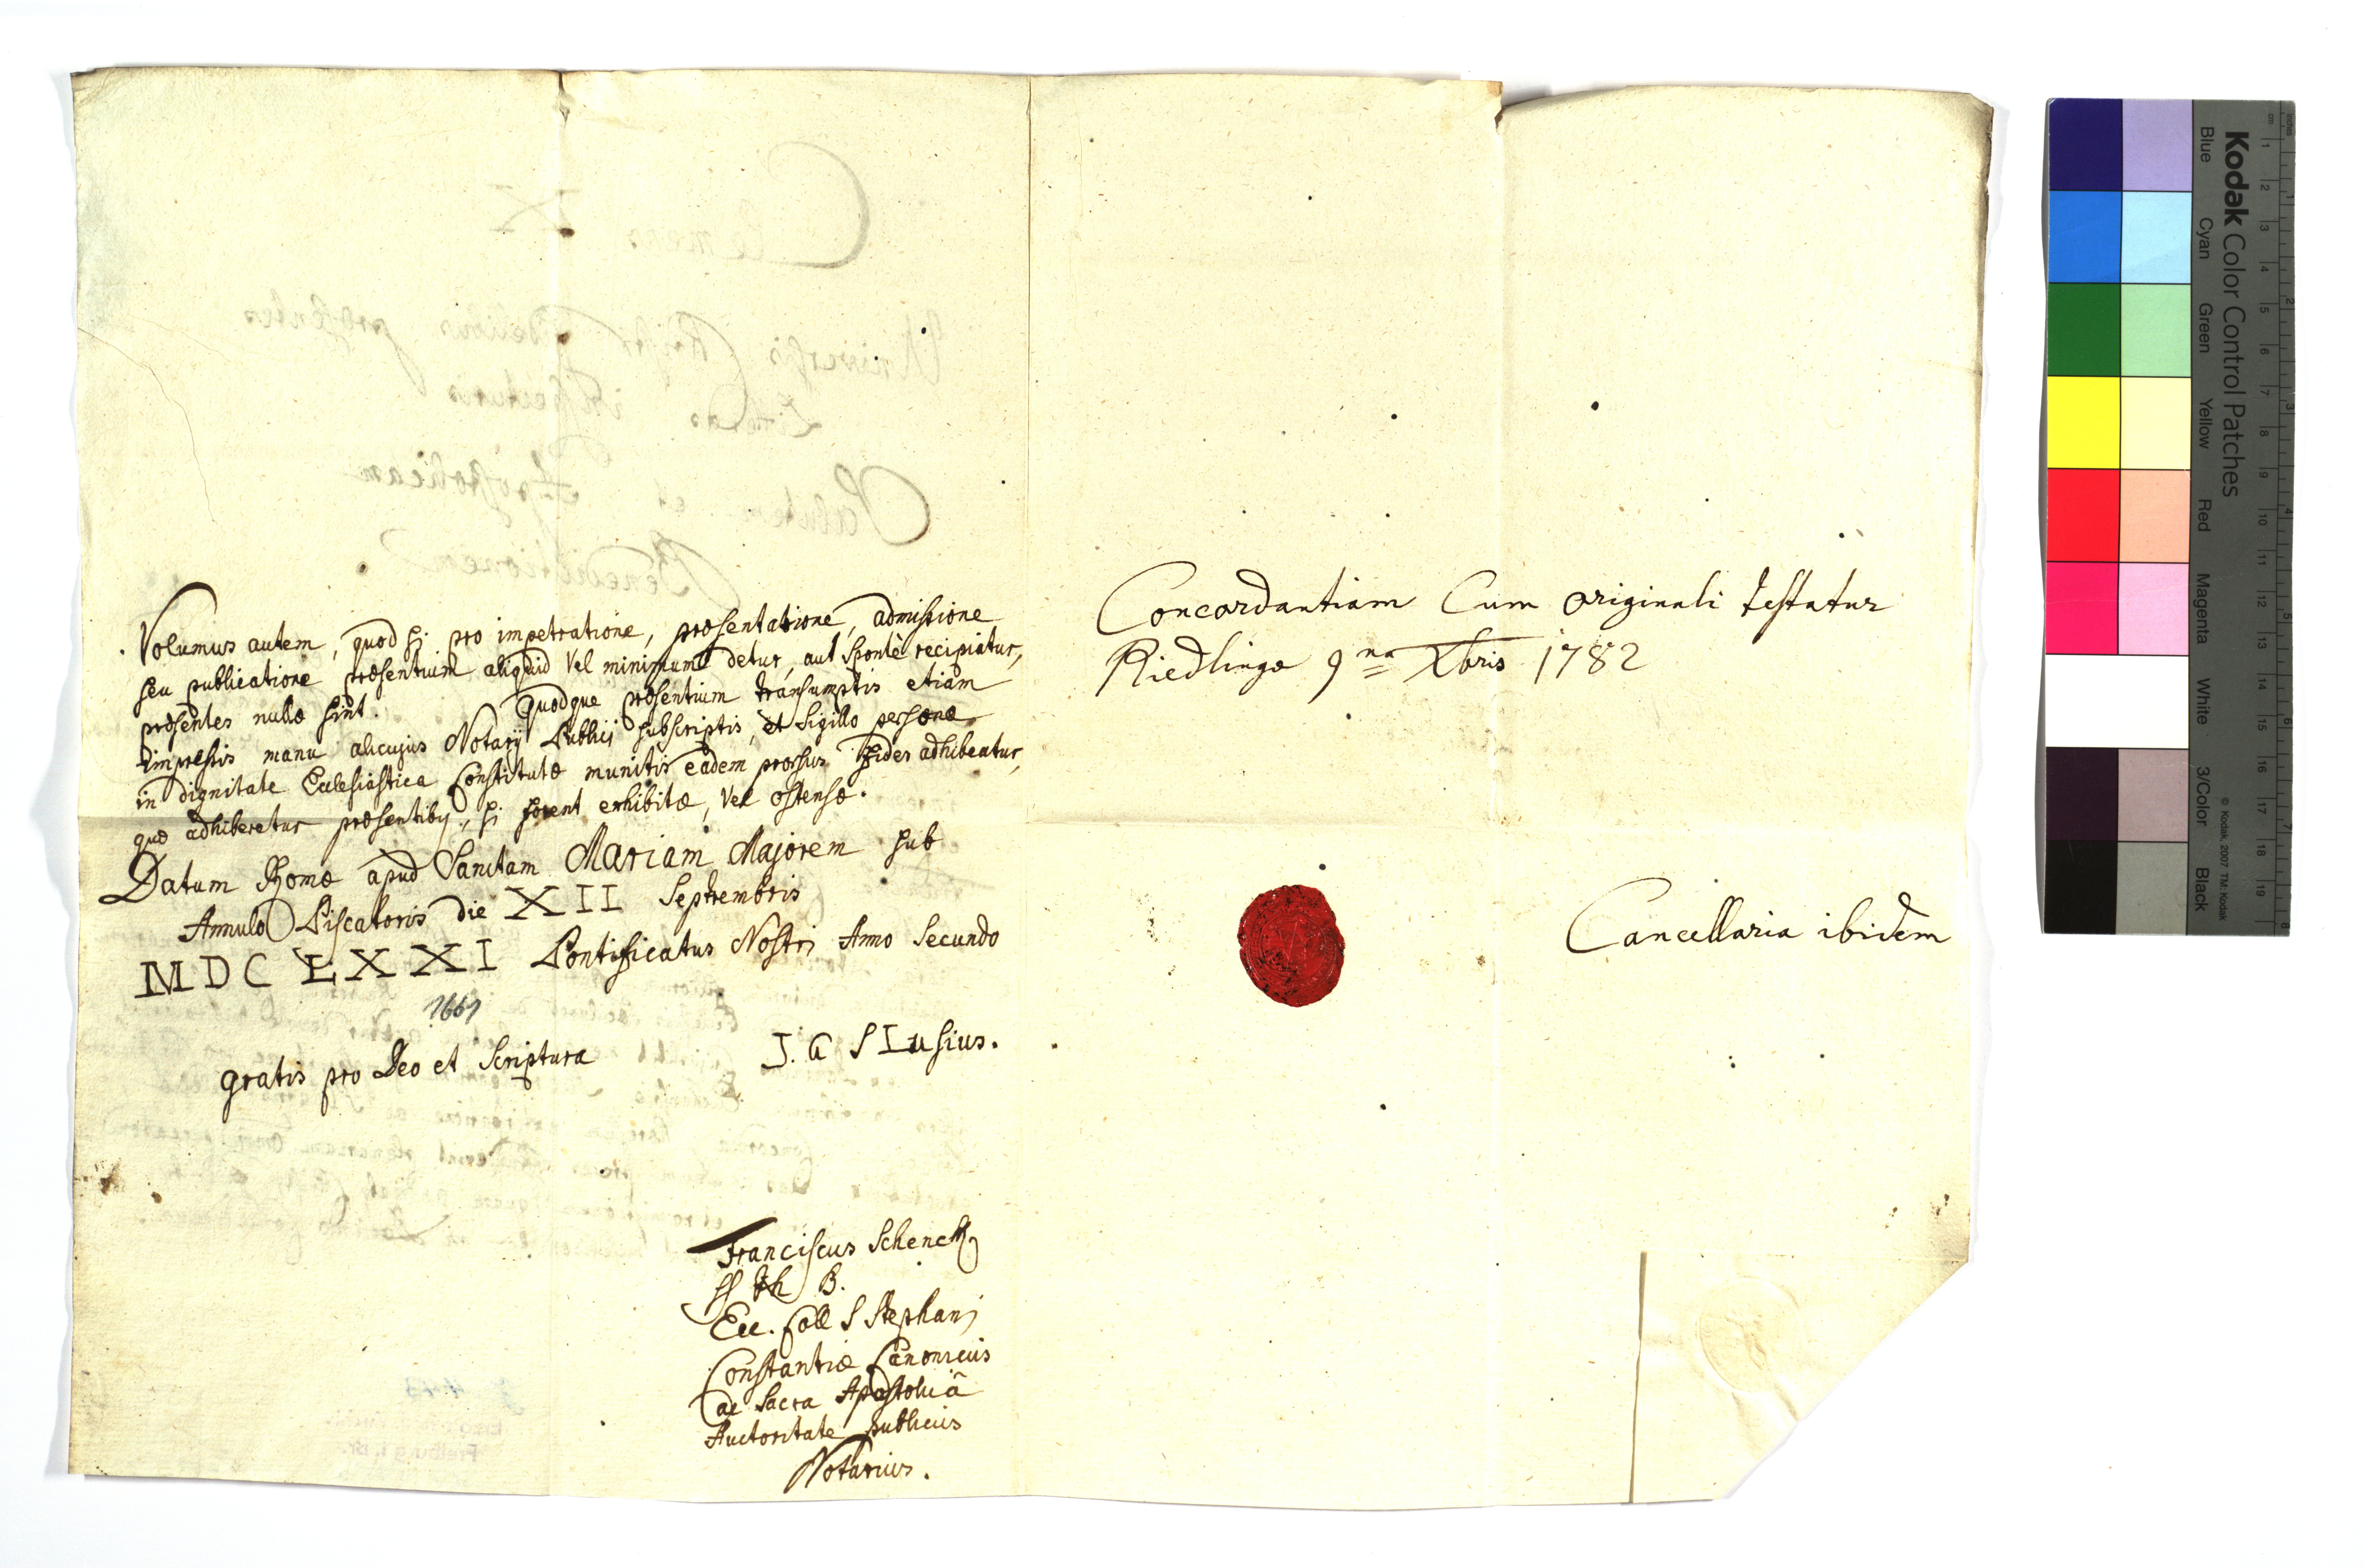 Volumus autem, quod si pro impetratione, præsentatione, admissione
seu publicatione præsentium aliquid vel minimum detur, aut sponte recipiatur,
præsentes nullæ sint. Quodque præsentium transumptis etiam
impressis manu alicujus Notarij Publicj subscriptis, et Sigillo personæ
in dignitate Ecclesiastica Constitutæ munitis eadem prorsus fides adhibeatur,
quæ adhiberetur præsentibq, si forent exhibitæ, vel ostensæ.
Datum Romæ apud Sanctam Mariam Majorem sub
Annulo Piscatoris die XII Septembris
MDCLXXI Pontificatus Nostri Anno Secundo
gratis pro Deo et Scriptura J. G Slusius.
Franciscus Schenck
B.
Ecc. Coll S Stephani
Constantiæ Canonicus
ac Sacra Apostolicâ
Auctoritate publicus
Notarius.
Concordantiam Cum originali testatur
Riedlingæ 9na Xbris 1782
Cancellaria ibidem
Kodak Color Control Patches
Blue Cyan Green Yellow Red Magenta White 3/Color Black
© Kodak, 2007 TM: Kodak
cm 1 2 3 4 5 6 7 8 9 10 11 12 13 14 15 16 17 18 19
inches 1 2 3 4 5 6 7 8